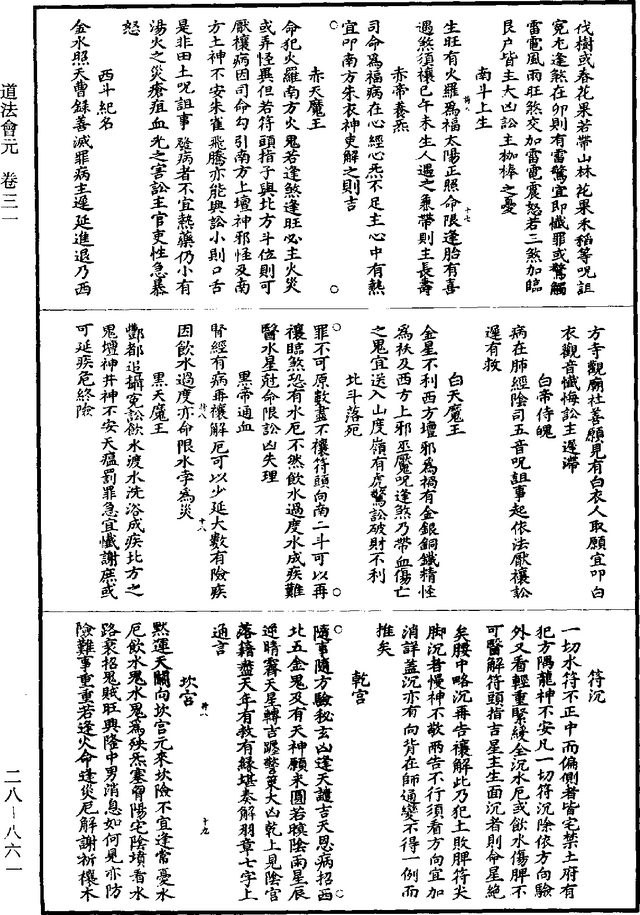 道法會元 卷三一
二八—八六一
伐樹或春花果若帶山林花果禾稻等呪詛
冤尢逢煞在卯則有雷驚宜即懺罪或驚觸
雷電風雨旺煞交加雷電震怒若三煞加臨
艮户皆主大凶訟主枷棒之憂
南斗上生
生旺有火羅為福太陽正照命限逢胎有喜
遇煞須禳巳午未生人遇之兼帶則主長壽
赤帝養炁
司命為福病在心經心炁不足主心中有熱
宜叩南方朱衣神吏解之則吉
赤天魔王
命犯火羅南方火鬼若逢煞逢旺必主火災
或弄怪異但若符頭指子與北方斗位則可
厭禳病因司命勾引南方上壇神邪怪及南
方土神不安朱雀飛騰亦能興訟小則口舌
是非田土呪詛事發病者不宜熱藥仍小有
湯火之災瘡疽血光之害訟主官吏性急暴
怒
西斗紀名
金水照天曹錄善滅罪病主遲延進退乃西
方寺觀廟社善願見有白衣人取願宜叩白
衣觀音懺悔訟主遲滯
白帝侍魄
病在肺經陰司五音呪詛事起依法厭禳訟
遲有救
白天魔王
金星不利西方壇邪為禍有金銀銅鐵精怪
為袄及西方上邪巫魘呪逢煞乃帶血傷亡
之鬼宜送入山度嶺有虎驚訟破財不利
北斗落死
罪不可原數盡不禳符頭向南二斗可以再
禳臨煞恐有水厄不然飲水過度水成疾難
醫水星尅命限訟凶失理
黑帝通血
腎經有病再禳解厄可以少延大數有險疾
因飲水過度亦命限水孛為災
黑天魔王
酆都追攝冤訟飲水渡水洗浴成疾北方之
鬼壇神井神不安天瘟罰罪急宜懺謝庶或
可延疾危終險
符沉
一切水符不正中而偏側者皆宅禁土府有
犯方隅龍神不安凡一切符沉除依方向驗
外又看輕重緊緩全沉水厄或飲水傷脾不
可醫解符頭指吉星主生面沉者則命星絕
矣腰中略沉再告禳解此乃犯土敗脾符尖
脚沉者慢神不敬所告不行須看方向宜加
消詳蓋沉亦有向背在師通變不得一例而
推矣
乾宮
隨事隨方驗秘玄凶逢天譴吉天恩病招西
北五金鬼及有天神願未圓若暎陰南星辰
逆晴霽天星轉吉躔驚藥大凶乾上見陰官
落籍盡天年有救有緣堪奏解羽章七字上
通言
坎宮
黙運天關向坎宮元來坎險不宜逢常憂水
厄飲水鬼水鬼為殃炁塞𦙶陽宅陰墳看水
路衰招鬼賊旺興隆中男消息如何見亦防
險難事重重若逢火命逢災厄解謝祈禳木